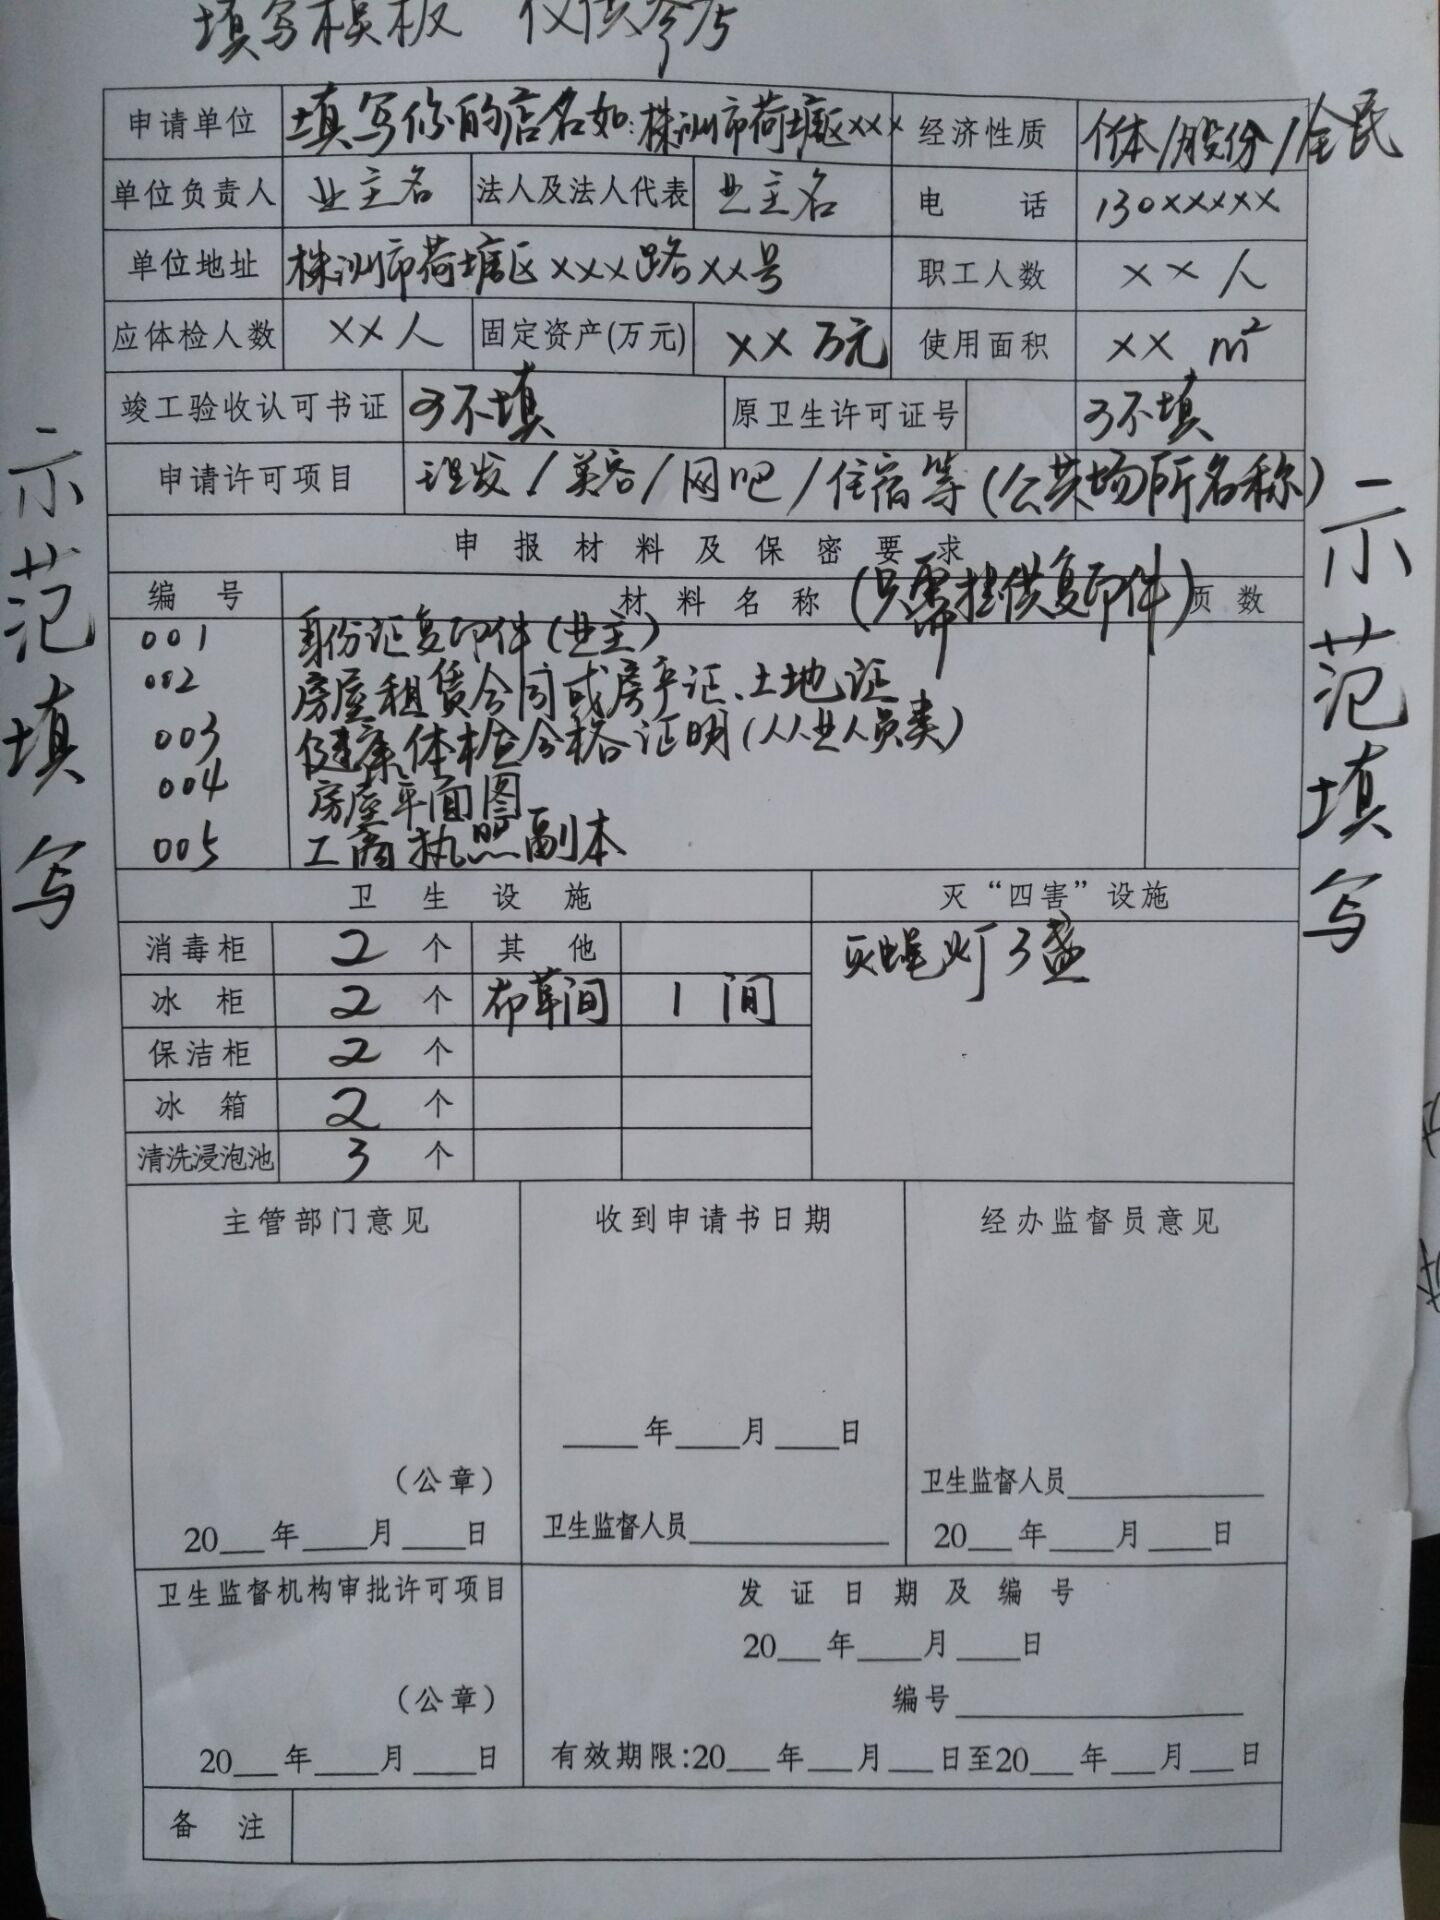 填写模板 仅供参考
申请单位 填写你的店名如:株洲市荷塘区××× 经济性质 个体/股份/全民
单位负责人 业主名 法人及法人代表 业主名 电 话 130×××××
单位地址 株洲市荷塘区×××路××号 职工人数 ××人
应体检人数 ××人 固定资产(万元) ××万元 使用面积 ×× m²
竣工验收认可书证 可不填 原卫生许可证号 可不填
申请许可项目 理发/美容/网吧/住宿等(公共场所名称)
申报材料及保密要求
编号 材料名称(只需提供复印件) 页数
001 身份证复印件(业主)
002 房屋租赁合同或房产证、土地证
003 健康体检合格证明(从业人员类)
004 房屋平面图
005 工商执照副本
卫生设施 灭“四害”设施
消毒柜 2 个 其他 灭蝇灯3盏
冰柜 2 个 布草间 1 间
保洁柜 2 个
冰箱 2 个
清洗浸泡池 3 个
主管部门意见 收到申请书日期 经办监督员意见
____年____月____日
(公章) 卫生监督人员____
20__年____月____日 卫生监督人员____ 20__年____月____日
卫生监督机构审批许可项目 发证日期及编号
20__年____月____日
(公章) 编号____
20__年____月____日 有效期限:20__年___月___日至20__年___月___日
备注
示范填写
示范填写